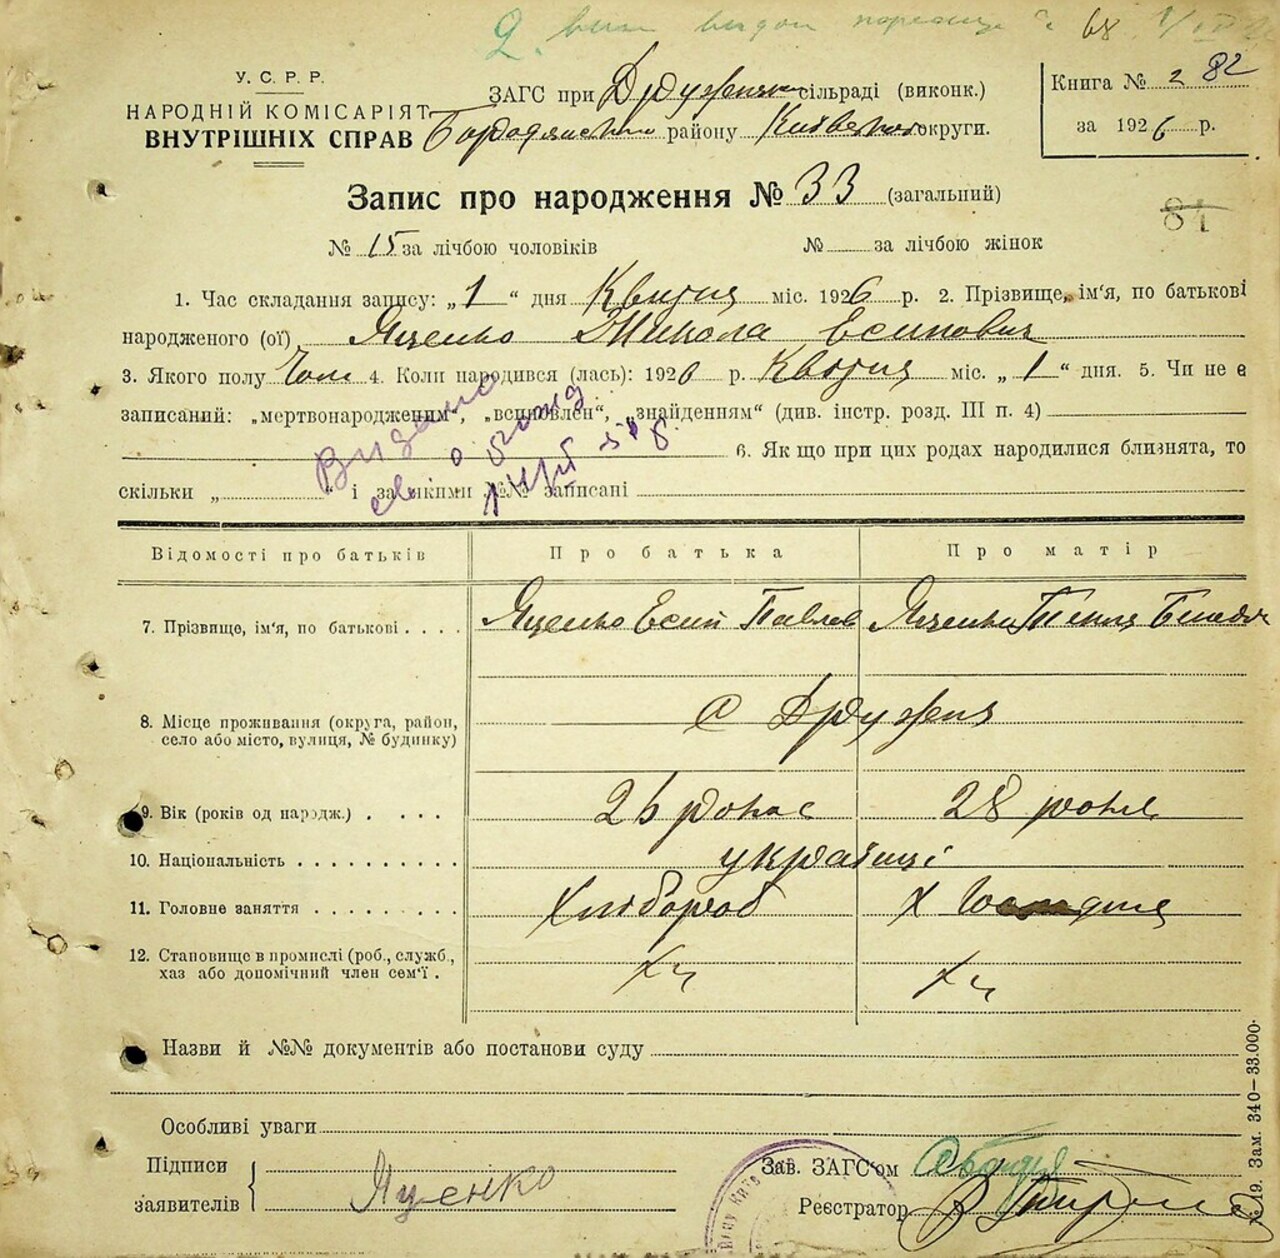 У. С. Р. Р.
НАРОДНІЙ КОМІСАРІЯТ
ВНУТРІШНІХ СПРАВ
ЗАГС при Дружнян сільраді (виконк.)
Бородянськ району Київськ округи.
Книга № 2 82
за 1926 р.
Запис про народження № 33 (загальний)
84
№ 15 за лічбою чоловіків № за лічбою жінок
1. Час складання запису: „1“ дня Квітня міс. 1926 р. 2. Прізвище, ім'я, по батькові
народженого (ої) Яценко Микола Есипович
3. Якого полу Чол 4. Коли народився (лась): 1926 р. Квітня міс. „1“ дня. 5. Чи не є
записаний: „мертвонародженим“, „всиновлен“, „знайденням“ (див. інстр. розд. III п. 4)
6. Як що при цих родах народилися близнята, то
скільки „ “ і за якими №№ записані
Видано
Відомості про батьків Про батька Про матір
7. Прізвище, ім'я, по батькові . . . . Яценко Есип Павлов Яценко
8. Місце проживання (округа, район,
село або місто, вулиця, № будинку)
с Дружня
9. Вік (років од народж.) . . . . 26 рокас 28 років
10. Національність . . . . . . . . . . українці
11. Головне заняття . . . . . . . . . Хлібороб Х
12. Становище в промислі (роб., службов.,
хаз або допомічний член сем'ї .
Назви й №№ документів або постанови суду
Особливі уваги
Підписи
заявителів
Яценко
Зав. ЗАГС'ом
Реєстратор
№ 19. Зам. 340—33.000.